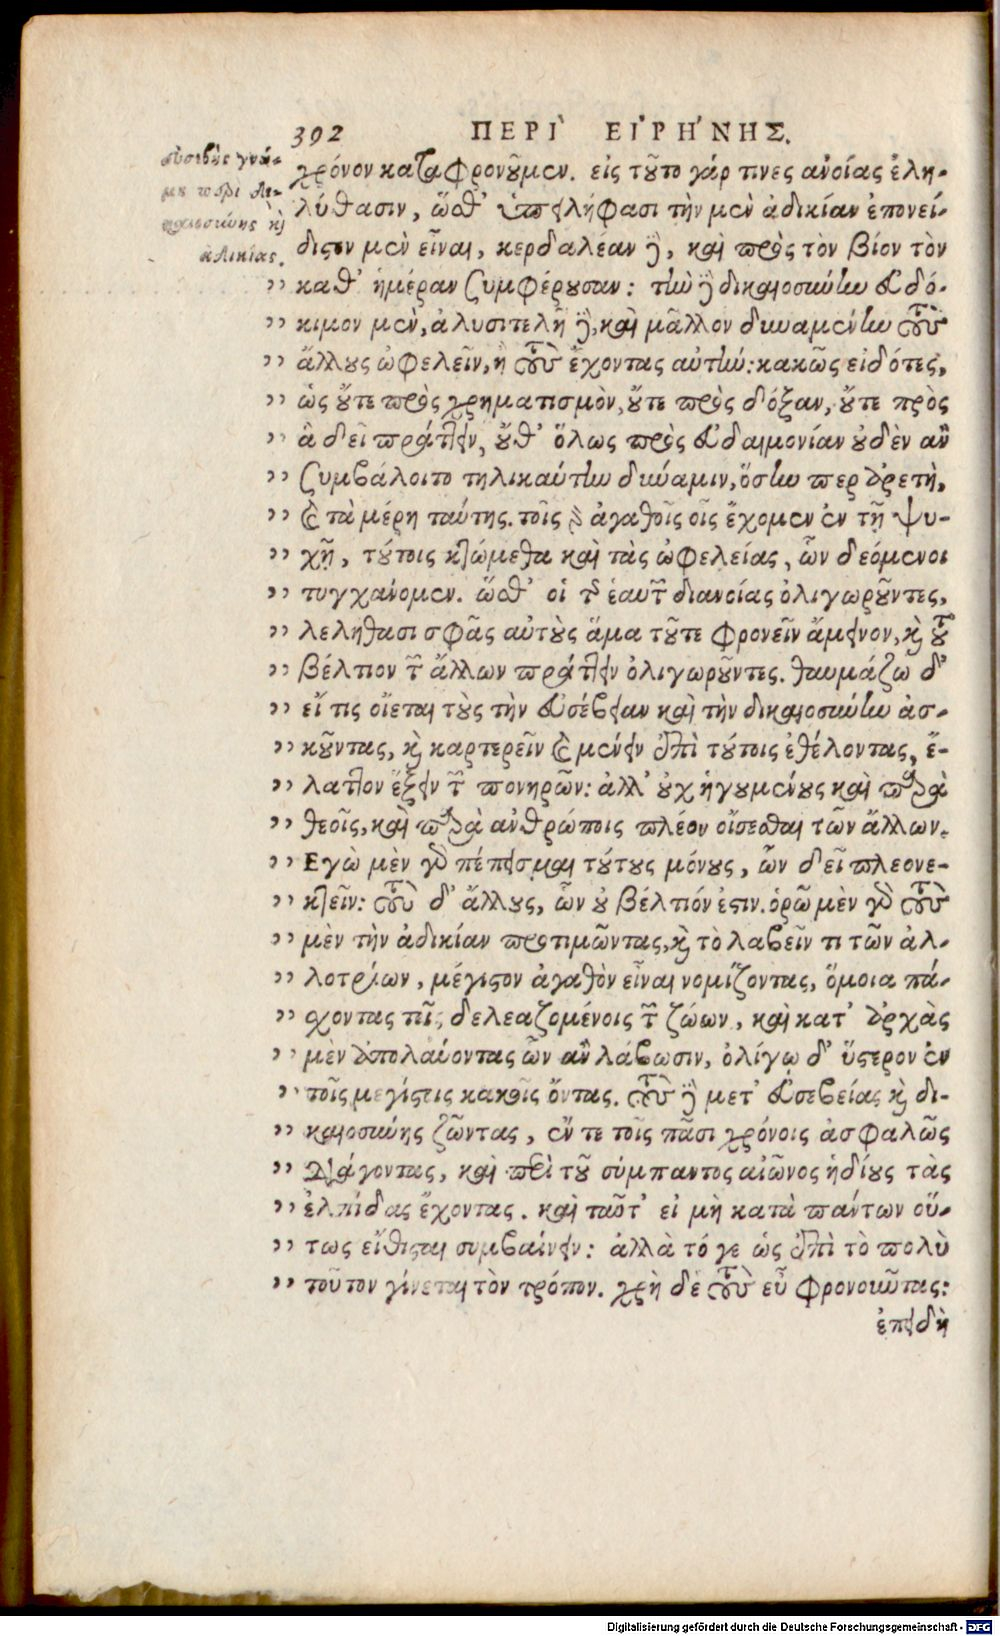 392 ΠΕΡΙ` ΕΙ᾿ΡΗ´ΝΗΣ.
εὐσεβὴς γνώ-
μη περὶ δι-
καιοσύνης κὶ
ἀδικίας.
χρόνον καταφρονοῦμεν. εἰς τοῦτο γάρ τινες ἀνοίας ἐλη-
λύθασιν, ὥσθ᾽ ὑπειλήφασι τὴν μὲν ἀδικίαν ἐπονεί-
διστον μὲν εἶναι, κερδαλέαν δὲ, καὶ πρὸς τὸν βίον τὸν
,, καθ᾽ ἡμέραν συμφέρουσαν: τὴν δὲ δικαιοσύνην εὐδό-
,, κιμον μὲν, ἀλυσιτελῆ δὲ, καὶ μᾶλλον δυναμένην τοὺς
,, ἄλλους ὠφελεῖν, ἢ τοὺς ἔχοντας αὐτήν: κακῶς εἰδότες,
,, ὡς οὔτε πρὸς χρηματισμὸν, οὔτε πρὸς δόξαν, οὔτε πρὸς
,, ἃ δεῖ πράττειν, οὔθ᾽ ὅλως πρὸς εὐδαιμονίαν οὐδὲν ἂν
,, συμβάλοιτο τηλικαύτην δύναμιν, ὅσην περ ἀρετὴ,
,, καὶ τὰ μέρη ταύτης. τοῖς γὰρ ἀγαθοῖς οἷς ἔχομεν ἐν τῇ ψυ-
,, χῇ, τούτοις κτώμεθα καὶ τὰς ὠφελείας, ὧν δεόμενοι
,, τυγχάνομεν. ὥσθ᾽ οἱ τῆς ἑαυτῶν διανοίας ὀλιγωροῦντες,
,, λελήθασι σφᾶς αὐτοὺς ἅμα τοῦτε φρονεῖν ἄμεινον, καὶ τοῦ
,, βέλτιον τῶν ἄλλων πράττειν ὀλιγωροῦντες. θαυμάζω δ᾽
,, εἴ τις οἴεται τοὺς τὴν εὐσέβειαν καὶ τὴν δικαιοσύνην ἀσ-
,, κοῦντας, καὶ καρτερεῖν καὶ μένειν ἐπὶ τούτοις ἐθέλοντας, ἔ-
,, λαττον ἕξειν τῶν πονηρῶν: ἀλλ᾽ οὐχ ἡγουμένους καὶ παρὰ
,, θεοῖς, καὶ παρὰ ἀνθρώποις πλέον οἴσεσθαι τῶν ἄλλων.
,, Εγὼ μὲν γὰρ πέπεισμαι τούτους μόνους, ὧν δεῖ πλεονε-
,, κτεῖν: τοὺς δ᾽ ἄλλους, ὧν οὐ βέλτιόν ἐστιν. ὁρῶ μὲν γὰρ τοὺς
,, μὲν τὴν ἀδικίαν προτιμῶντας, καὶ τὸ λαβεῖν τι τῶν ἀλ-
,, λοτρίων, μέγιστον ἀγαθὸν εἶναι νομίζοντας, ὅμοια πά-
,, σχοντας τοῖς δελεαζομένοις τῶν ζώων, καὶ κατ᾽ ἀρχὰς
,, μὲν ἀπολαύοντας ὧν ἂν λάβωσιν, ὀλίγῳ δ᾽ ὕστερον ἐν
,, τοῖς μεγίστοις κακοῖς ὄντας. τοὺς δὲ μετ᾽ εὐσεβείας καὶ δι-
,, καιοσύνης ζῶντας, ἔν τε τοῖς πᾶσι χρόνοις ἀσφαλῶς
,, διάγοντας, καὶ περὶ τοῦ σύμπαντος αἰῶνος ἡδίους τὰς
,, ἐλπίδας ἔχοντας. καὶ ταῦτ᾽ εἰ μὴ κατὰ πάντων οὕ-
,, τως εἴθισται συμβαίνειν: ἀλλὰ τό γε ὡς ἐπὶ τὸ πολὺ
,, τοῦτον γίνεται τὸν τρόπον. χρὴ δὲ τοὺς εὖ φρονοῦντας:
ἐπειδὴ
Digitalisierung gefördert durch die Deutsche Forschungsgemeinschaft - DFG